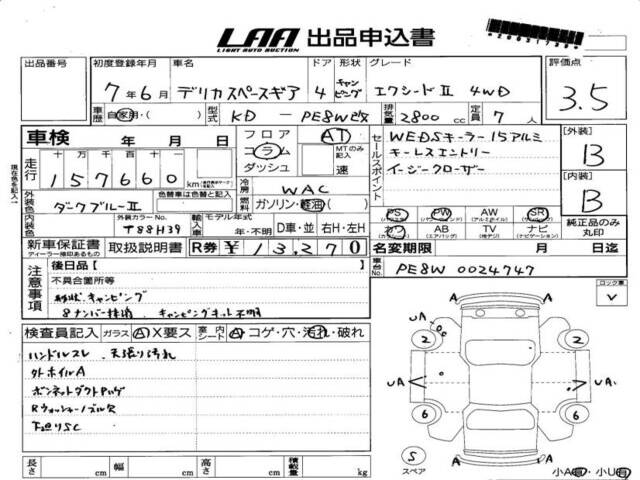 LAA 出品申込書
LIGHT AUTO AUCTION
出品番号 初度登録年月 車名 ドア 形状 グレード 評価点
7年6月 デリカスペースギア 4 キャンピング エクシードⅡ 4WD 3.5
車歴 自家用・( ) 型式 KD － PE8W改 排気量 2800 cc 定員 7 人
車検 年 月 日
フロア コラム ダッシュ
AT MTのみ記入 速
セールスポイント
WEDSキーラー15アルミ
キーレスエントリー
イージークローザー
[外装] B
[内装] B
現在色を記入
走行 十万 万 千 百 十
157660 km
冷房 WAC
外装色 ダークブルーⅡ
色替車は色替と記入
燃料 ガソリン・軽油( )
PS PW AW SR
カワ AB TV ナビ
純正品のみ丸印
内装色 外装カラーNo. T88H39
輸入車 モデル年式 年・不明 D車・並 右H・左H
新車保証書 取扱説明書 R券 ¥13,270
ディーラー捺印あるもの
名変期限 月 日迄
車台No. PE8W 0024747
注意事項
後日品[ ]
不具合箇所等
形状.キャンピング
8ナンバー接消 キャンピングキット不明
ロック車
検査員記入 ガラス A X要ス 室内 シート A コゲ・穴・汚れ・破れ
ハンドルスレ 天張り汚れ
タトホイルA
ボンネットダクトハゲ
Rウォッシャーノズル欠
下廻りSC
UA A A
2 2
UA UA
6 6
S スペア A A
小A・小U
長さ cm 幅 cm 高さ cm 積載量 kg